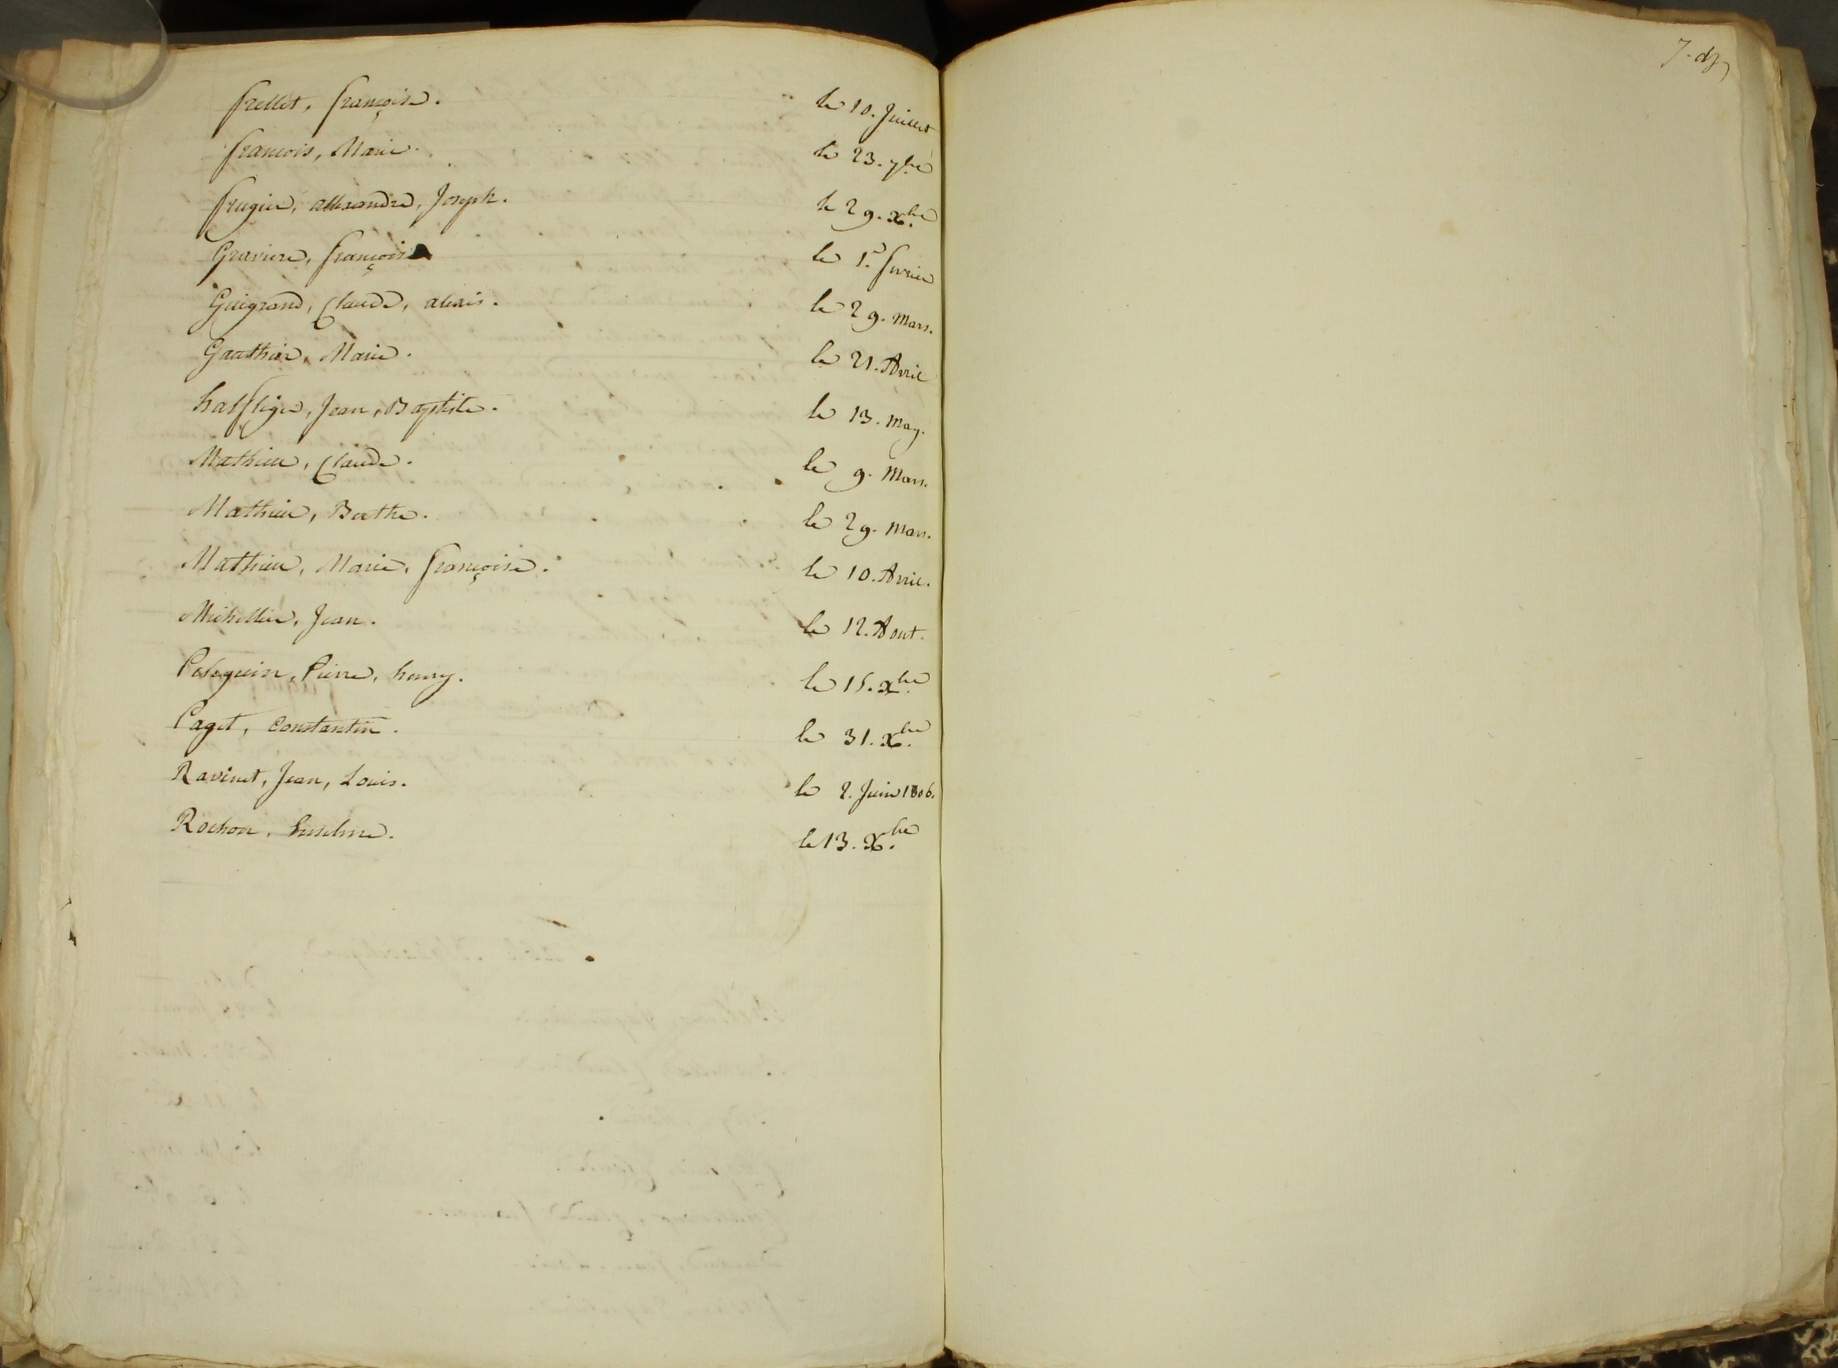 frellet, françoise. le 10. Juillet
françois, Marie. le 23. 7bre
frugier, allexandre, Joseph. le 29. xbre
Graviere, françoise le 1er fevrier
Guigrand, Claude, alexis. le 29. Mars.
Gauthier, Marie. le 21. Avril
halfliger, Jean, Baptiste. le 13. May.
Mathieu, Claude. le 9. Mars.
Mathieu, Berthe. le 29. Mars.
Mathieu, Marie, françoise. le 10. Avril.
Michellier, Jean. le 12. Aout.
Pierre, henry. le 15. xbre
Paget, Constantin. le 31. xbre
Ravinet, Jean, Louis. le 2. Juin 1806.
Rochon, Anselme. le 13. xbre